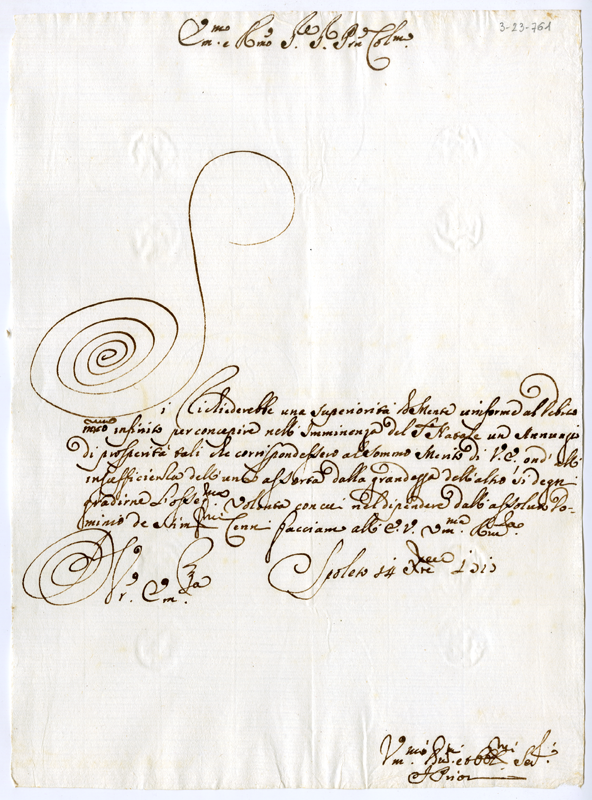 3-23-761
Em.mo e R.mo S.re S.r P.rn Col.mo
Si richiederebbe una superiorità di Mente uniforme al debito
infinito per concepire nell' Imminenza del S. Natale un Annunzio
di prosperità tali che corrispondessero al sommo Merito di V. E. ond' all'
insufficienza dell' uno assorta dalla grandezza dell' altro si degni
gradirne l'osseq.ma volontà con cui nel dipendere dall' assoluto Do-
minio de Cenni facciamo all' E. V. Um.ma Riu.za
Di V.ra Em.za
Spoleto 14 Xbre
Um.mi et Obl.mi Ser.
Priori